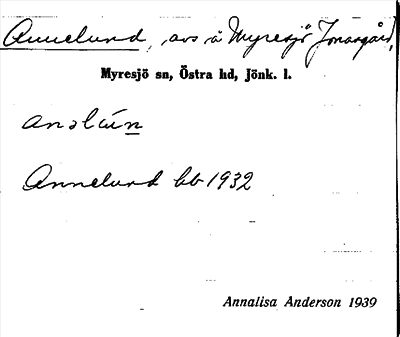 Annelund, avs å Myresjö Jonasgård,
Myresjö sn, Östra hd, Jönk. l.
anəlún
Annelund bb 1932
Annalisa Anderson 1939